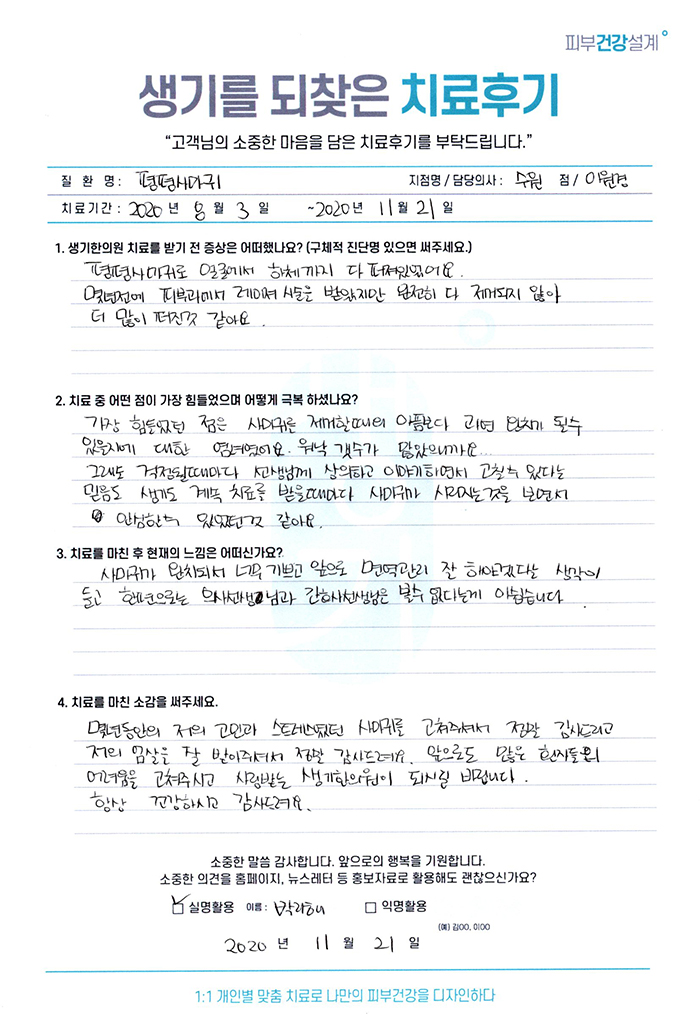 피부건강설계
생기를 되찾은 치료후기
“고객님의 소중한 마음을 담은 치료후기를 부탁드립니다.”
질 환 명 : 편평사마귀 지점명 / 담당의사 : 수원 점 / 이원경
치료기간 : 2020 년 8 월 3 일 ~2020 년 11 월 21 일
1. 생기한의원 치료를 받기 전 증상은 어떠했나요? (구체적 진단명 있으면 써주세요.)
편평사마귀로 얼굴에서 하체까지 다 퍼져있었어요.
몇년전에 피부과에서 레이저 시술을 받았지만 완전히 다 제거되지 않아
더 많이 퍼진것 같아요.
2. 치료 중 어떤 점이 가장 힘들었으며 어떻게 극복 하셨나요?
가장 힘들었던 점은 사마귀를 제거할때의 아픔보다 과연 완치가 될수
있을지에 대한 염려였어요. 워낙 갯수가 많았으니까요...
그래도 걱정될때마다 선생님께 상의하고 이야기하면서 고칠수 있다는
믿음도 생기고 계속 치료를 받을때마다 사마귀가 사라지는것을 보면서
안심할수 있었던것 같아요.
3. 치료를 마친 후 현재의 느낌은 어떠신가요?
사마귀가 완치되서 너무 기쁘고 앞으로 면역관리 잘 해야겠다는 생각이
들고 한편으로는 의사선생님과 간호사선생님을 볼수 없다는게 아쉽습니다
4. 치료를 마친 소감을 써주세요.
몇년동안의 저의 고민과 스트레스였던 사마귀를 고쳐주셔서 정말 감사드리고
저의 엄살을 잘 받아주셔서 정말 감사드려요. 앞으로도 많은 환자들의
어려움을 고쳐주시고 사랑받는 생기한의원이 되시길 바랍니다.
항상 건강하시고 감사드려요.
소중한 말씀 감사합니다. 앞으로의 행복을 기원합니다.
소중한 의견을 홈페이지, 뉴스레터 등 홍보자료로 활용해도 괜찮으신가요?
실명활용 이름 : 익명활용
(예) 김OO, 이OO
2020 년 11 월 21 일
1:1 개인별 맞춤 치료로 나만의 피부건강을 디자인하다